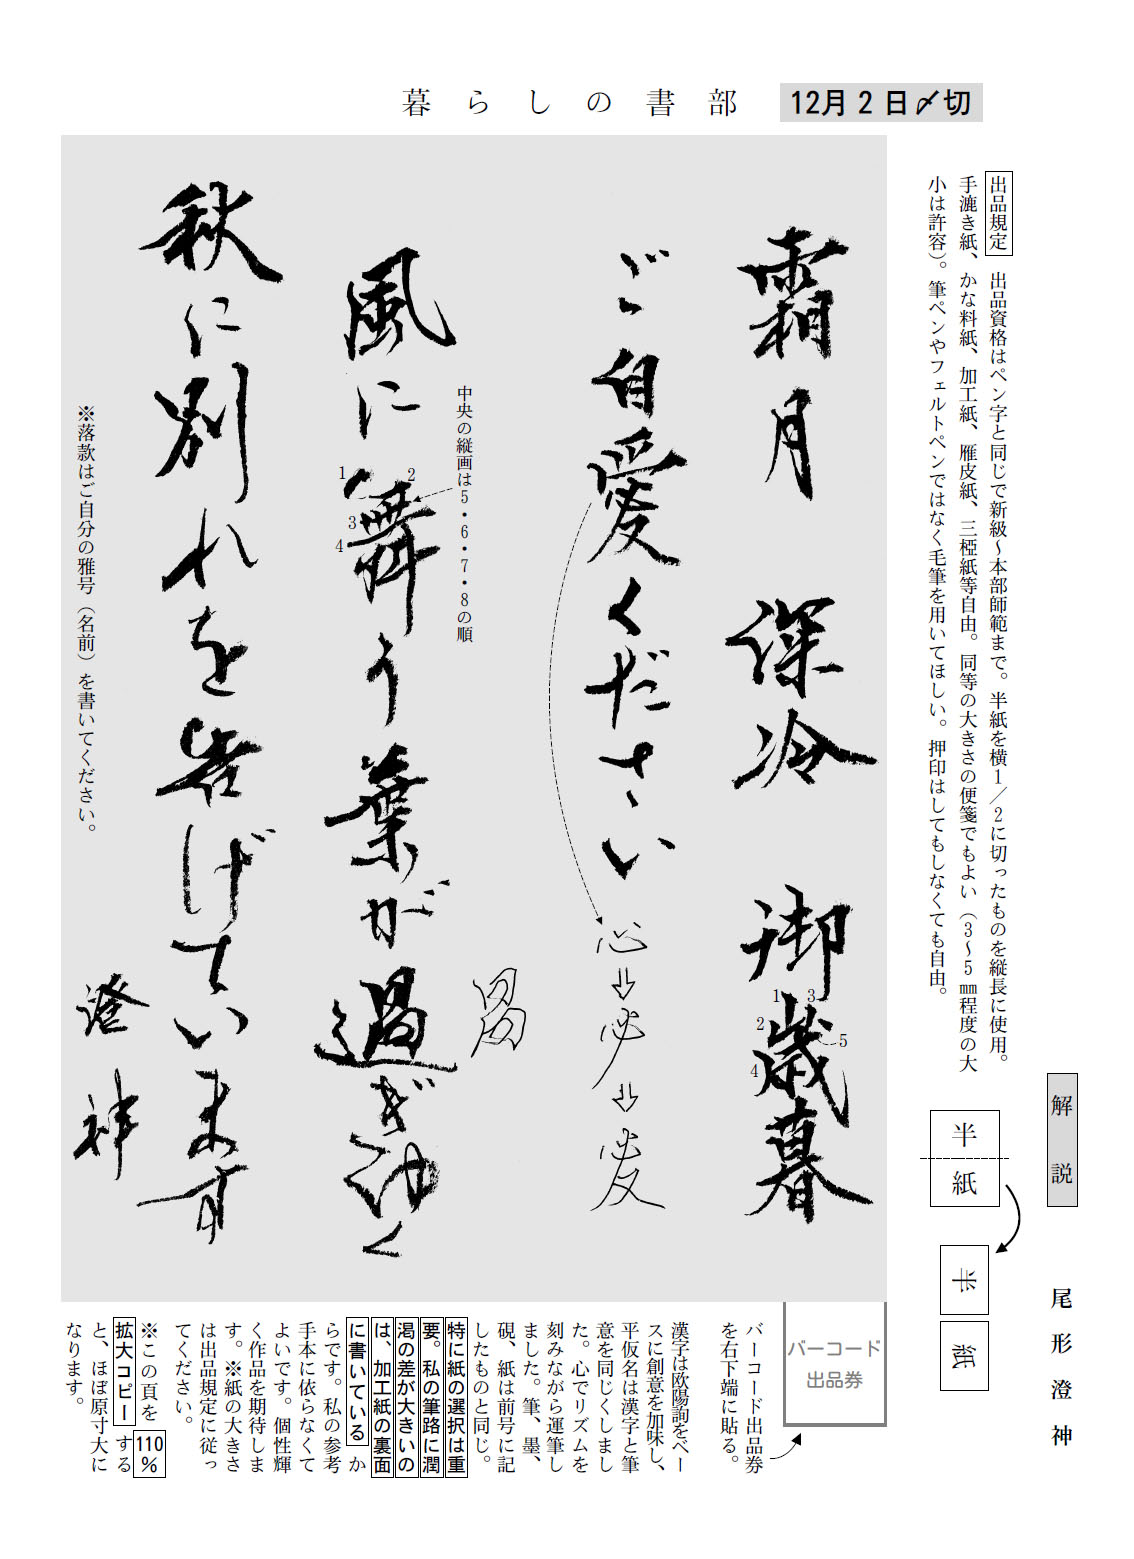 暮らしの書部
12月2日〆切
出品規定 出品資格はペン字と同じで新級～本部師範まで。半紙を横1／2に切ったものを縦長に使用。
手漉き紙、かな料紙、加工紙、雁皮紙、三椏紙等自由。同等の大きさの便箋でもよい（3～5㎜程度の大
小は許容）。筆ペンやフェルトペンではなく毛筆を用いてほしい。押印はしてもしなくても自由。
解説
尾形澄神
半紙
半
紙
霜月 深冷 御歳暮
1
2
3
4
5
ご自愛ください
心
必
愛
中央の縦画は5・6・7・8の順
風に舞う葉が過ぎゆく
1
2
3
4
秋に別れを告げています
澄神
※落款はご自分の雅号（名前）を書いてください。
バーコード
出品券
バーコード出品券
を右下端に貼る。
漢字は欧陽詢をベー
スに創意を加味し、
平仮名は漢字と筆
意を同じくしまし
た。心でリズムを
刻みながら運筆し
ました。筆、墨、
硯、紙は前号に記
したものと同じ。
特に紙の選択は重
要。私の筆路に潤
渇の差が大きいの
は、加工紙の裏面
に書いているか
らです。私の参考
手本に依らなくて
よいです。個性輝
く作品を期待しま
す。※紙の大きさ
は出品規定に従っ
てください。
※この頁を110%
拡大コピーする
と、ほぼ原寸大に
なります。